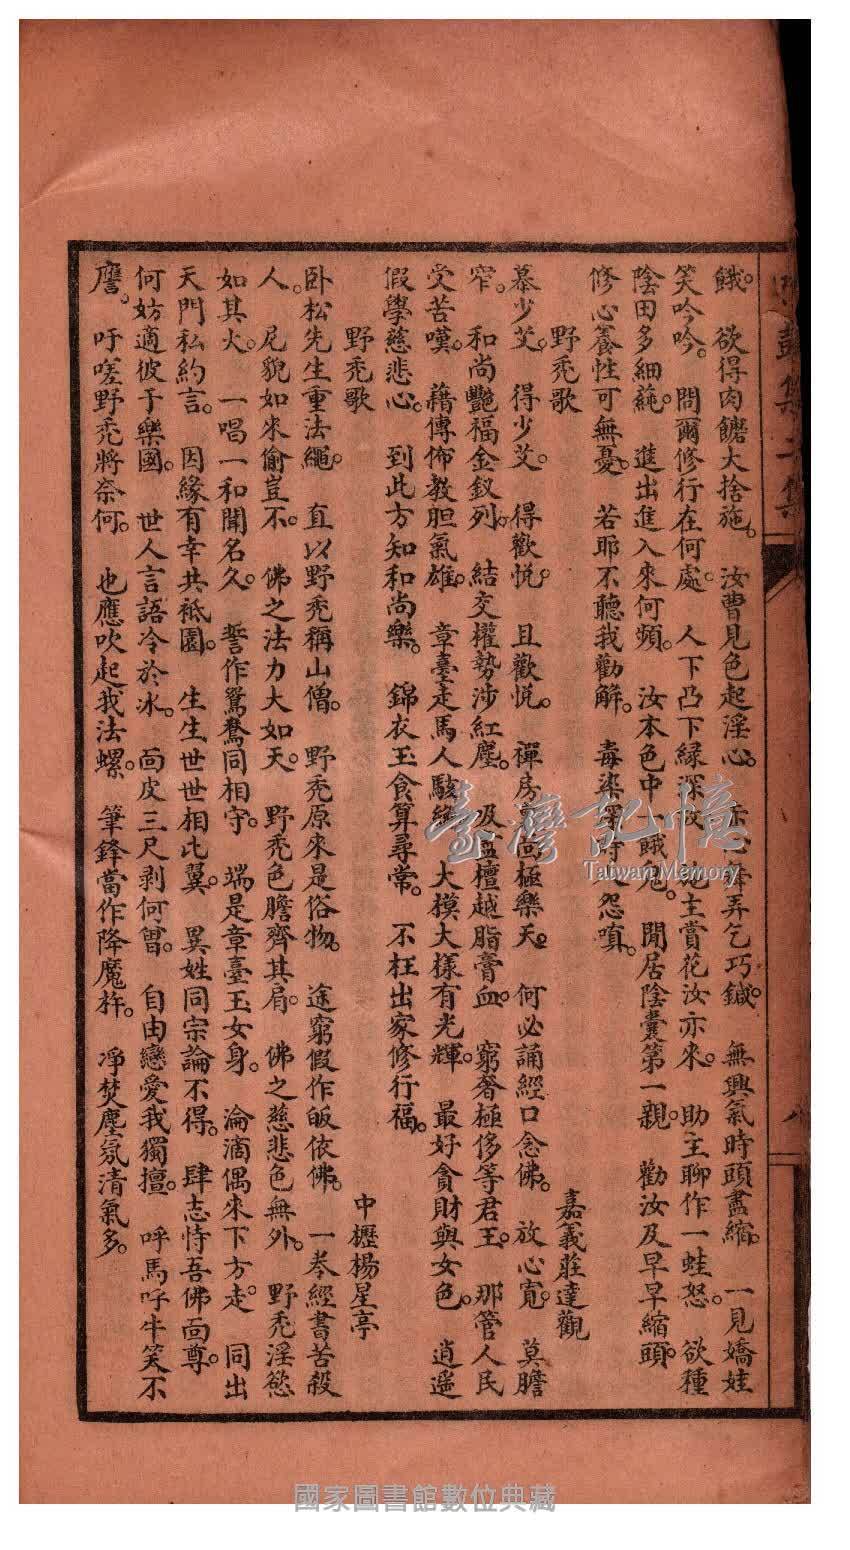 鼓集二集
餓。欲得肉饍大捨施。汝曹見色起淫心。弄乞巧鍼。無興氣時頭盡縮。一見嬌娃
笑吟吟。問爾修行在何處。人下凸下綠深。施主賞花汝亦來。助主聊作一蛙怒。欲種
陰田多細蓴。進出進入來何頻。汝本色中餓鬼。閒居陰囊第一親。勸汝及早早縮頭。
修心養性可無憂。若耶不聽我勸解。毒染深時怨嗔。
野禿歌
嘉義莊達觀
慕少艾。得少艾。得歡悅。且歡悅。禪房高極樂天。何必誦經口念佛。放心寬。莫膽
窄。和尚艷福金釵列。結交權勢涉紅塵。吸盡檀越脂膏血。窮奢極侈等君王。那管人民
受苦嘆。藉傳佈教胆氣雄。章臺走馬人駭絕。大模大樣有光輝。最好貪財與女色。逍遥
假學慈悲心。到此方知和尚樂。錦衣玉食算尋常。不枉出家修行福。
野禿歌
中壢楊星亭
卧松先生重法繩。直以野禿稱山僧。野禿原來是俗物。途窮假作皈依佛。一卷經書苦殺
人。尼貌如來偷豈不。佛之法力大如天。野禿色膽齊其肩。佛之慈悲色無外。野禿淫慾
如其火。一唱一和聞名久。誓作鴛鴦同相守。端是章臺玉女身。淪滴偶來下方走。同出
天門私約言。因緣有幸共祗園。生生世世相比翼。異姓同宗論不得。肆志恃吾佛面尊。
何妨適彼于樂國。世人言語冷於冰。面皮三尺剥何曾。自由戀愛我獨擅。呼馬呼牛笑不
譍。吁嗟野禿將奈何。也應吹起我法螺。筆鋒當作降魔杵。淨焚塵氛清氣多。
臺灣記憶
Taiwan Memory
國家圖書館數位典藏